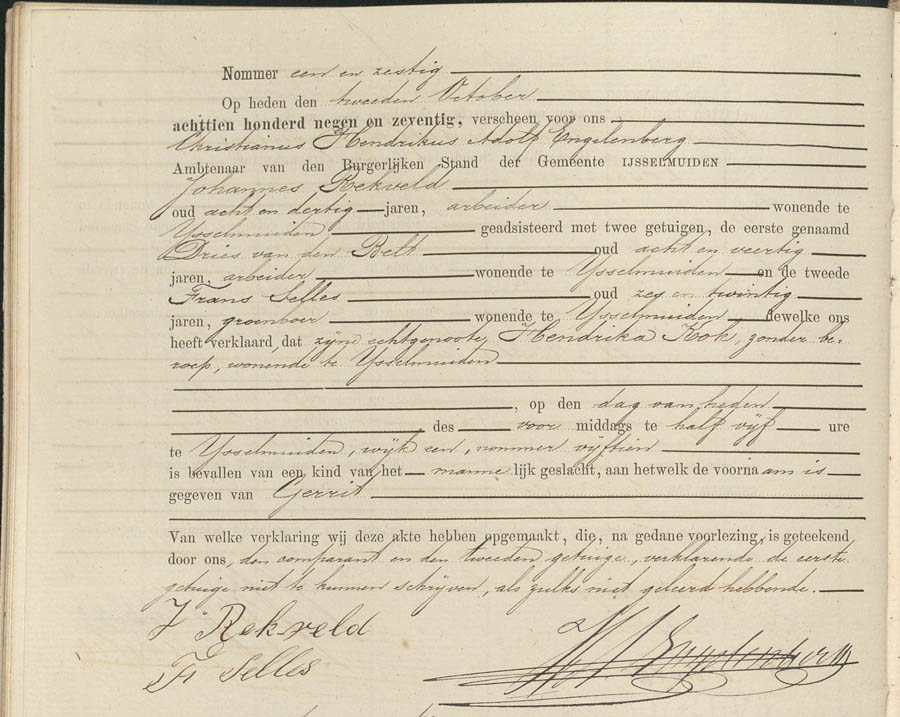 Nommer een en zestig
Op heden den tweeden October
achttien honderd negen en zeventig, verscheen voor ons
Christianus Hendrikus Adolf Engelenberg
Ambtenaar van den Burgerlijken Stand der Gemeente IJSSELMUIDEN
Johannes Rekveld
oud acht en dertig jaren, arbeider wonende te
IJsselmuiden geadsisteerd met twee getuigen, de eerste genaamd
Dries van den Belt oud acht en veertig
jaren, arbeider wonende te IJsselmuiden en de tweede
Frans Selles oud zes en twintig
jaren, groenboer wonende te IJsselmuiden dewelke ons
heeft verklaard, dat zijne echtgenoote, Hendrika Kok, zonder be-
roep, wonende te IJsselmuiden
, op den dag van heden
des voor middags te half vijf ure
te IJsselmuiden, wijk een, nommer vijftien
is bevallen van een kind van het manne lijk geslacht, aan hetwelk de voornaam is
gegeven van Gerrit
Van welke verklaring wij deze akte hebben opgemaakt, die, na gedane voorlezing, is geteekend
door ons, den comparant en den tweeden getuige, verklarende de eerste
getuige niet te kunnen schrijven, als zulks niet geleerd hebbende.
J Rekveld
F Selles
Engelenberg